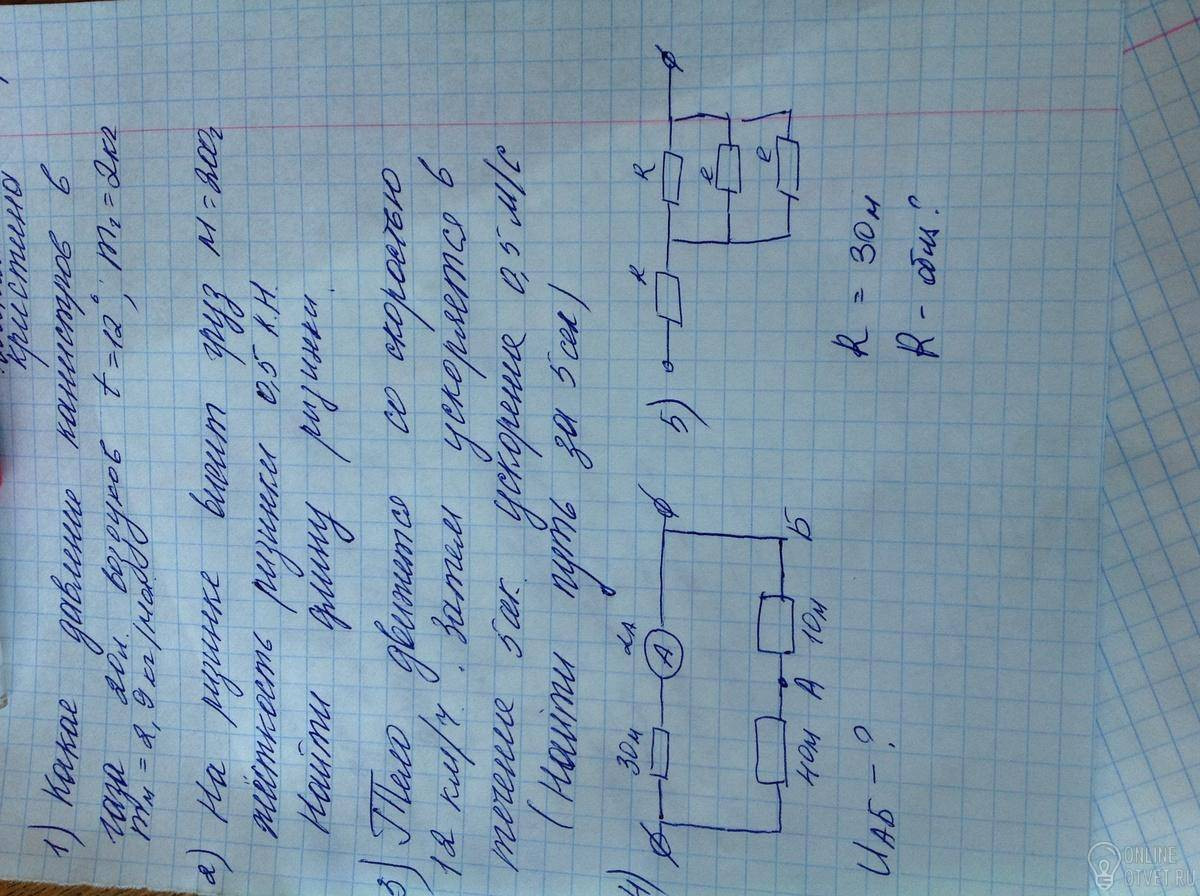 кристина
1) Какое давление канистров в
газа 20л. воздухов t = 12°, m₂ = 2кг
mм = 2,9 кг/моль
2) На ризинке висит груз м = 200г
жёсткость ризинки 0,5 К.Н.
Найти длину ризинки.
3) Тело движется со скоростью
12 км/ч. Затем ускоряется в
течение 5сек. ускорение 0,5 м/с
(Найти путь за 5сек)
4)
3Ом
2А
A
4Ом
А
1Ом
Б
UАБ - ?
5)
R
R
R
R
R = 3Ом
R - общ?
ONLINE
OTVET.RU